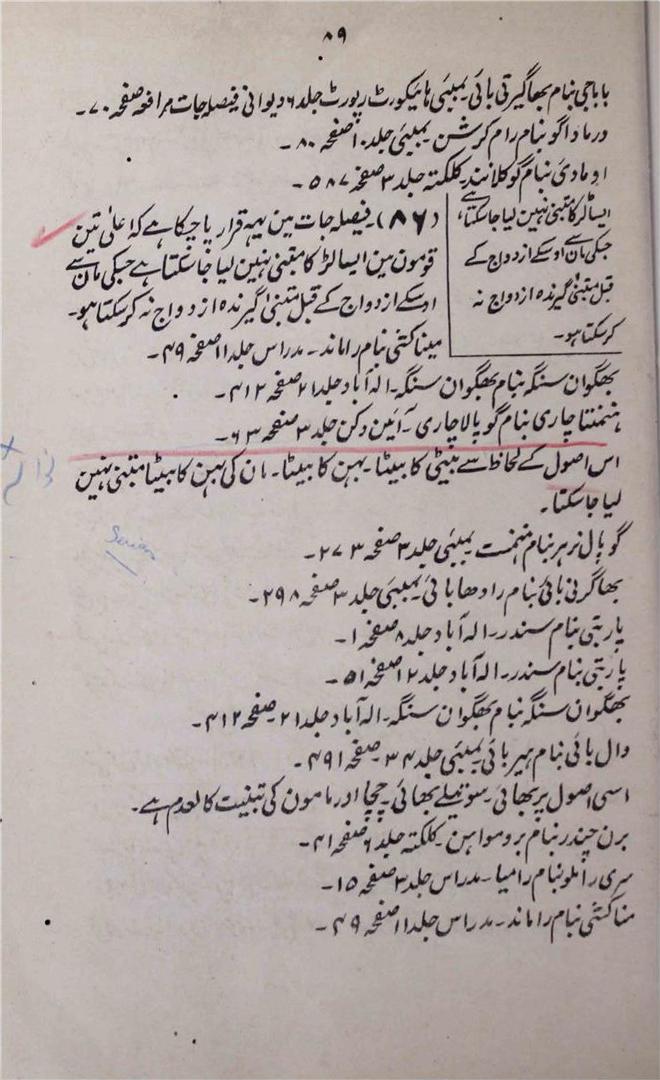 ۸۹
باباجی بنام بھاگیرتی بائی۔ بمبئی ہائیکورٹ رپورٹ جلد ۶ دیوانی فیصلہ جات مرافعہ صفحہ ۷۰۔
درماداگو بنام رام کرشن بمبئی جلد ۱۰ صفحہ ۸۰۔
اومادی بنام گوکلانند کلکتہ جلد ۳ صفحہ ۵۸۷۔
ایسا لڑکا متبنیٰ نہین لیا جا سکتا ہے
جسکی مان سے اوسکے ازدواج کے
قبل متبنیٰ گیرندہ ازدواج نہ
کرسکتا ہو۔
(۸۶)۔ فیصلہ جات مین یہہ قرار پا چکا ہے کہ اعلیٰ تین
قومون مین ایسا لڑکا متبنیٰ نہین لیا جا سکتا ہے جسکی مان سے
اوسکے ازدواج کے قبل متبنیٰ گیرندہ ازدواج نہ کرسکتا ہو۔
میناکشی بنام راماند۔ مدراس جلد ۱۱ صفحہ ۴۹۔
بھگوان سنگہ بنام بھگوان سنگہ۔ الہ آباد جلد ۲۱ صفحہ ۴۱۲۔
ہنمنتاچاری بنام گوپالاچاری۔ آئین دکن جلد ۳ صفحہ ۶۳۔
اس اصول کے لحاظ سے بیٹی کا بیٹا۔ بہن کا بیٹا۔ مان کی بہن کا بیٹا متبنیٰ نہین
لیا جا سکتا۔
گوپال نرہر بنام ہنمنت بمبئی جلد ۳ صفحہ ۲۷۳۔
بھاگرتی بائی بنام رادھا بائی۔ بمبئی جلد ۳ صفحہ ۲۹۸۔
پاربتی بنام سندر۔ الہ آباد جلد ۸ صفحہ ۱۔
پاربتی بنام سندر۔ الہ آباد جلد ۱۲ صفحہ ۵۱۔
بھگوان سنگہ بنام بھگوان سنگہ۔ الہ آباد جلد ۲۱۔ صفحہ ۴۱۲۔
وال بائی بنام ہیر بائی۔ بمبئی جلد ۳۴ صفحہ ۴۹۱۔
اسی اصول پر بھائی۔ سوتیلے بھائی۔ چچا اور مامون کی تبنیت کالعدم ہے۔
برن چندر بنام بروموہن۔ کلکتہ جلد ۶ صفحہ ۴۱۔
سری راملو بنام رامیا۔ مدراس جلد ۳ صفحہ ۱۵۔
مناکشی بنام راماند۔ مدراس جلد ۱۱ صفحہ ۴۹۔